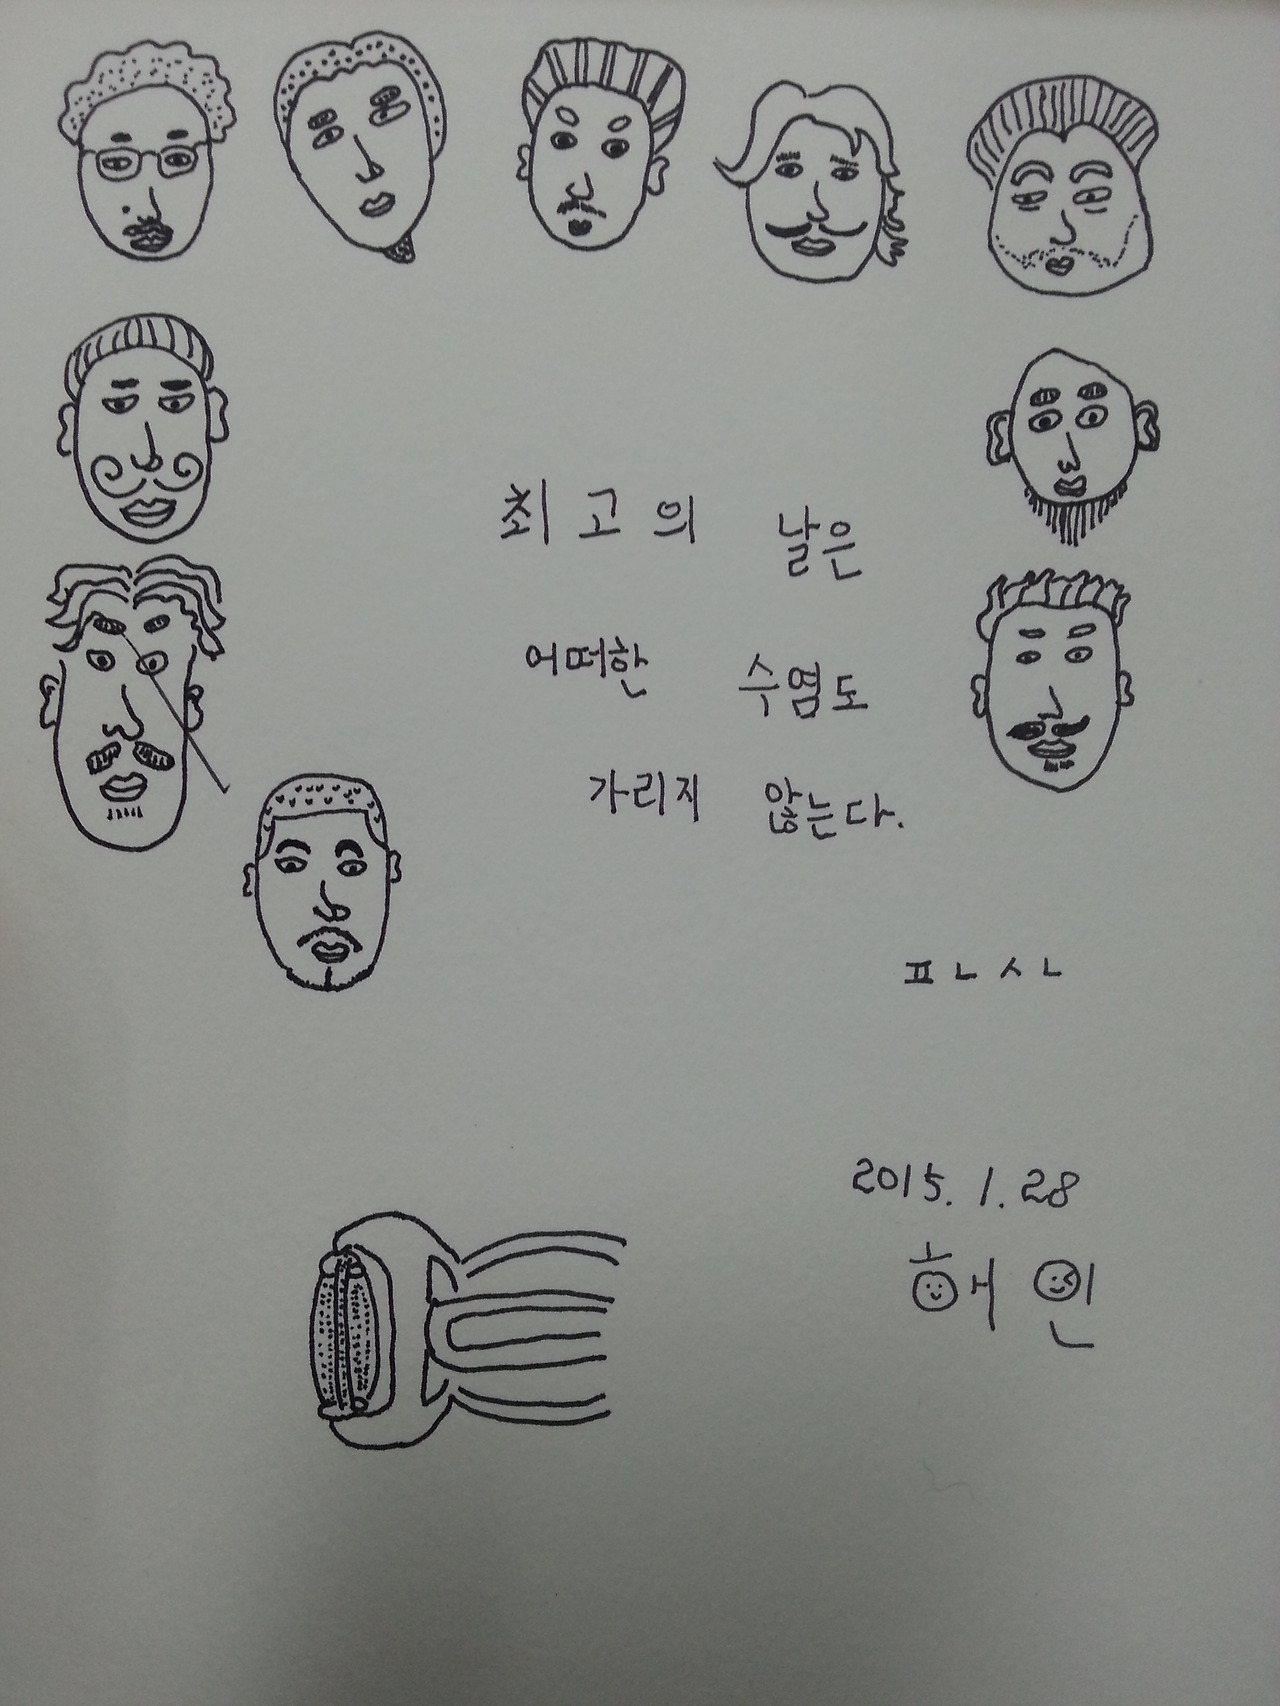 최고의 날은
어떠한 수염도
가리지 않는다.
ㅍㄴㅅㄴ
2015. 1. 28
혜인